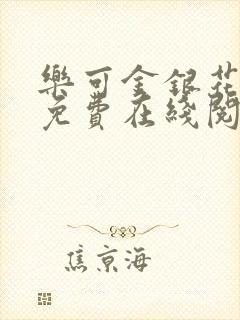 樂可金銀花
免費在綫閱
焦京海